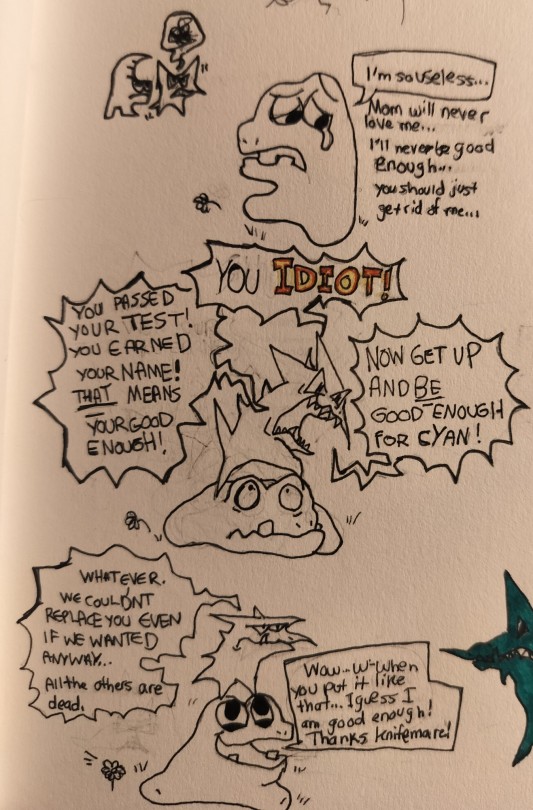 I'm so useless...
Mom will never
love me...
I'll never be good
Enough...
you should just
get rid of me...
YOU IDIOT!
YOU PASSED
YOUR TEST!
YOU EARNED
YOUR NAME!
THAT MEANS
YOUR GOOD
ENOUGH!
NOW GET UP
AND BE
GOOD ENOUGH
FOR CYAN!
WHATEVER.
WE COULDNT
REPLACE YOU EVEN
IF WE WANTED
ANYWAY...
All the others are
dead.
Wow... w-when
you put it like
that... I guess I
am good enough!
Thanks knifemare!